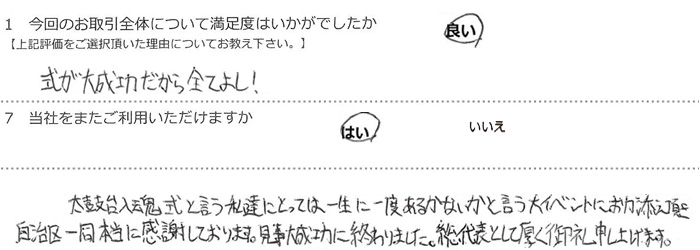 1 今回のお取引全体について満足度はいかがでしたか 良い
【上記評価をご選択頂いた理由についてお教え下さい。】
式が大成功だから全てよし!
7 当社をまたご利用いただけますか はい いいえ
太鼓台入魂式と言う私達にとっては一生に一度あるかないかと言う大イベントにお力添え頂き
自治区一同本当に感謝しております。見事大成功に終わりました。総代表として厚く御礼申し上げます。